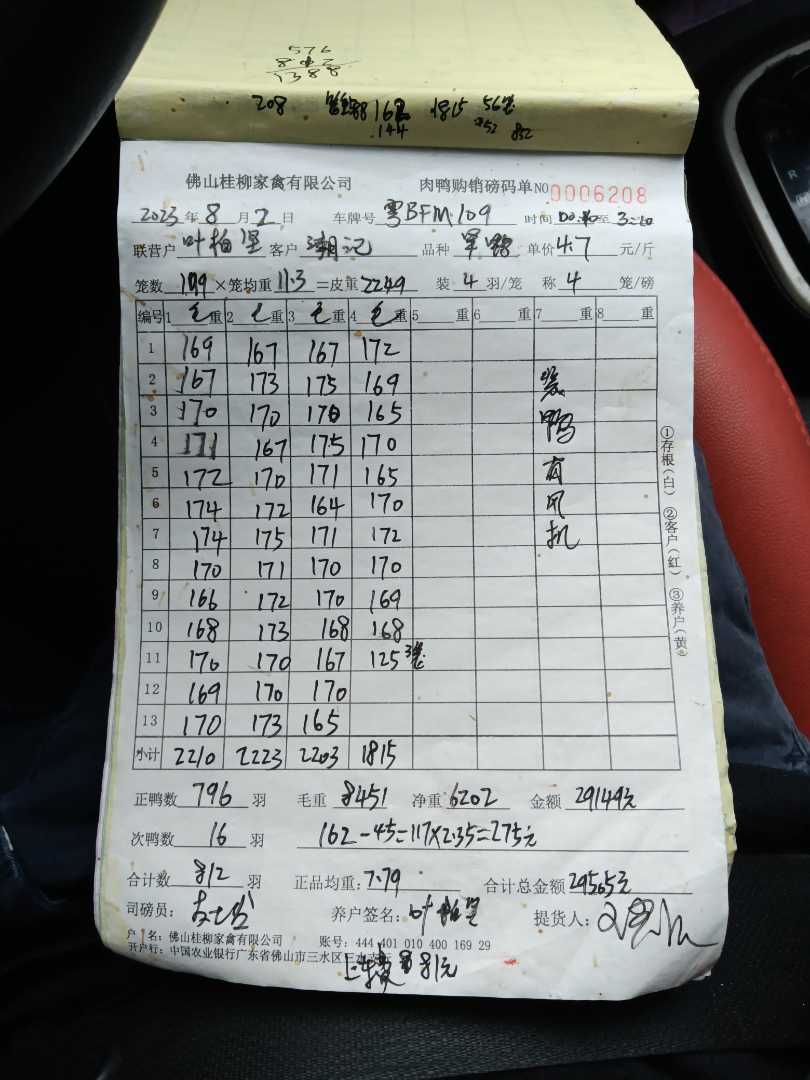 576
812
1388
208 162 1815 56笼
144 252 852
佛山桂柳家禽有限公司 肉鸭购销磅码单 NO 0006208
2023年8月2日 车牌号 粤BFM109 时间 至3:20
联营户 叶柏坚 客户 潮记 品种 单价 4.7 元/斤
笼数 199 ×笼均重 11.3 =皮重 2249 装 4 羽/笼 称 4 笼/磅
编号 1 毛 重 2 毛 重 3 毛 重 4 毛 重 5 重 6 重 7 重 8 重
1 169 167 167 172
2 167 173 175 169 装
3 170 170 170 165 鸭
4 171 167 175 170
5 172 170 171 165 有
6 174 172 164 170 风
7 174 175 171 172 机
8 170 171 170 170
9 166 172 170 169
10 168 173 168 168
11 170 170 167 125 3笼
12 169 170 170
13 170 173 165
小计 2210 2223 2203 1815
正鸭数 796 羽 毛重 8451 净重 6202 金额 29149元
次鸭数 16 羽 162-45=117×2.35=275元
合计数 812 羽 正品均重: 7.79 合计总金额 29565元
司磅员: 养户签名: 叶柏坚 提货人:
户 名: 佛山桂柳家禽有限公司 账号: 444 401 010 400 169 29
开户行: 中国农业银行广东省佛山市三水区三水支行
81元
①存根(白) ②客户(红) ③养户(黄)